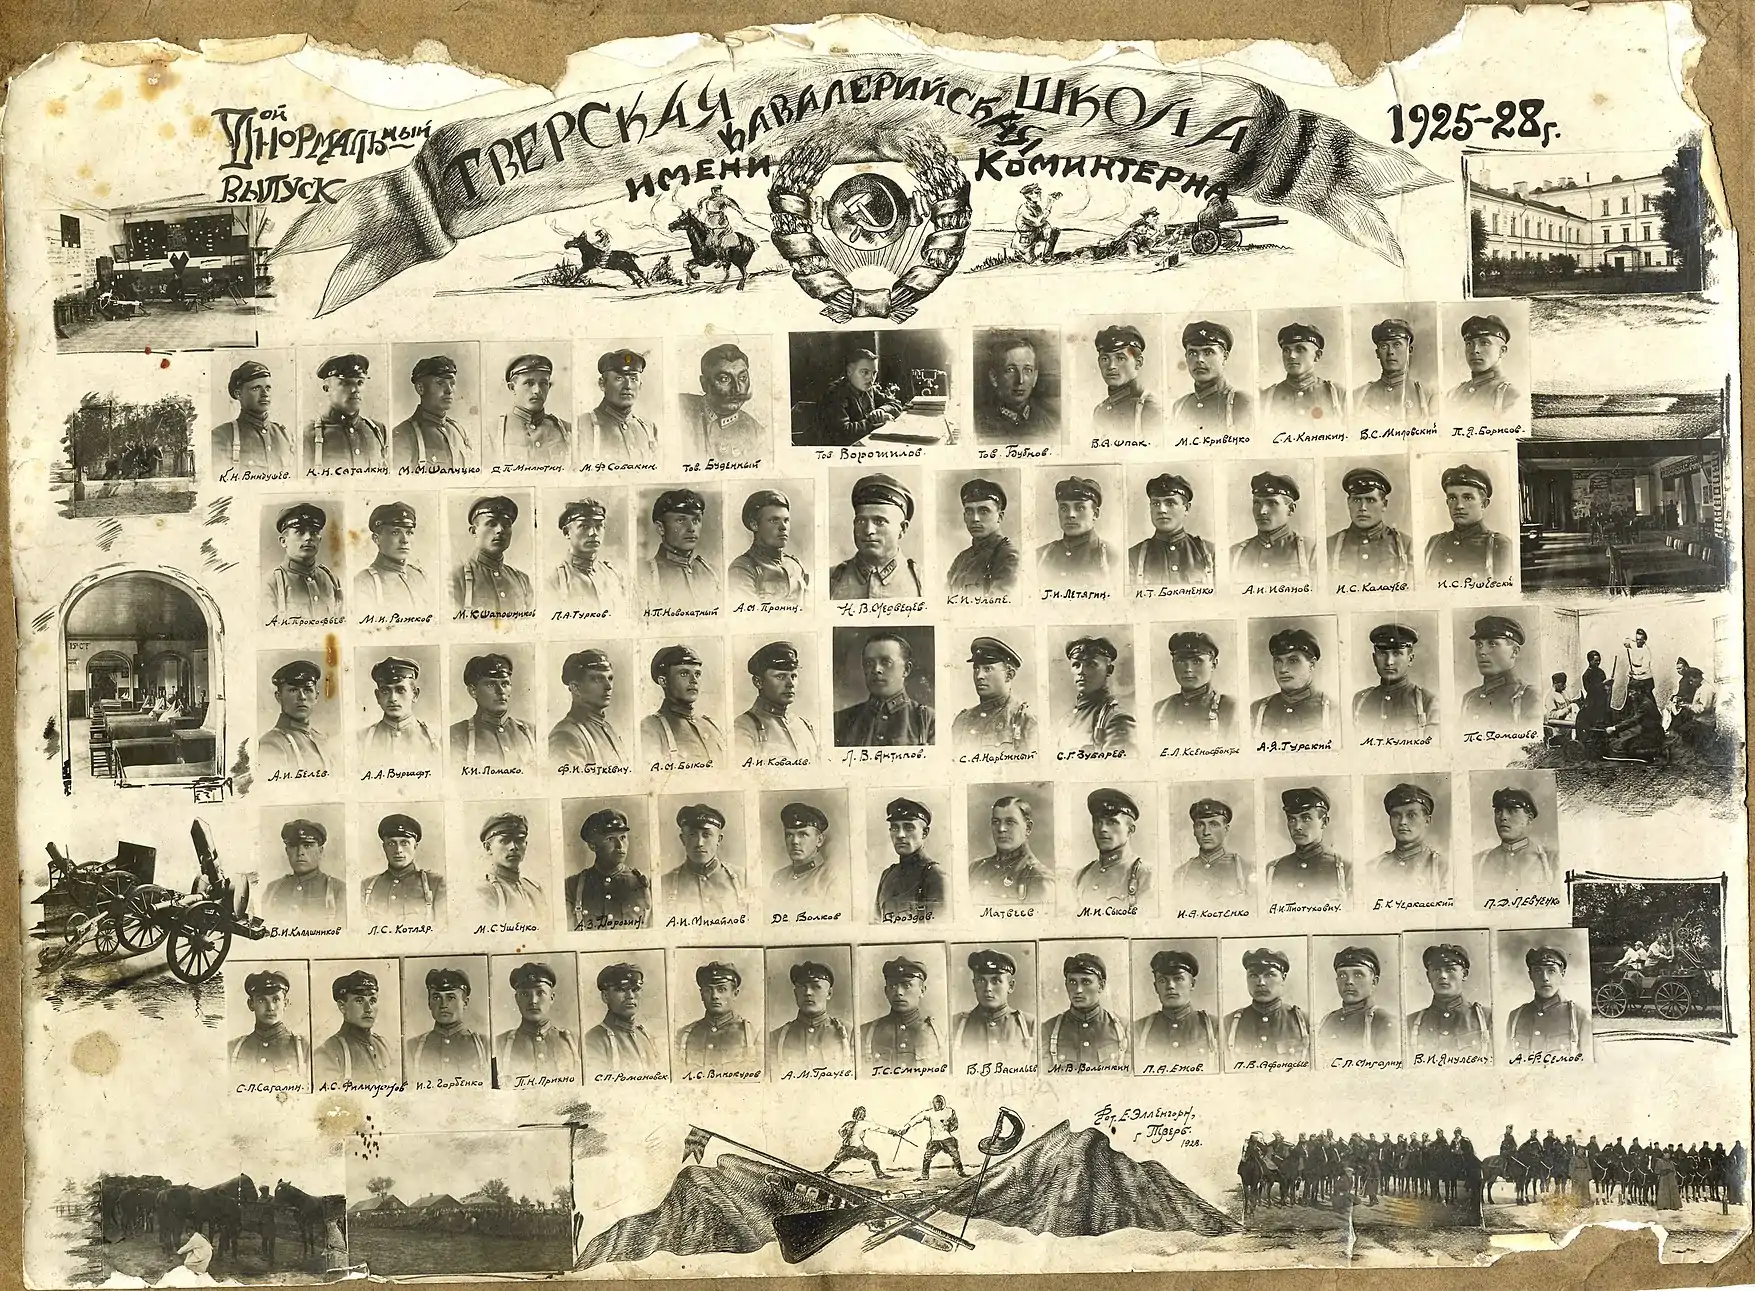 ой
нормальный
выпуск
ТВЕРСКАЯ
КАВАЛЕРИЙСКАЯ
ШКОЛА
ИМЕНИ КОМИНТЕРНА
1925-28г.
К.Н. Виндушев.
Н.Н. Саталкин.
М.М. Шапчцко
Д.П. Милютин.
М.Ф. Собакин.
Тов. Буденный
Тов Ворошилов.
Тов. Бубнов.
В.А. Шпак.
М.С. Кривенко
С.А. Канакин.
В.С. Миловский
П.Я. Борисов.
А.И. Прокофьев
М.И. Рыжков
М.К. Шапошников
П.А. Турков.
Н.П. Новохатный
А.Ф. Пронин.
Н.В. Медведев.
К.И. Ульпе.
Г.И. Летягин.
И.Т. Боканенко
А.И. Иванов.
И.С. Калачев.
И.С. Рушевский
А.И. Белев.
А.А. Вургафт.
К.И. Ломако.
Ф.И. Буткевич.
А.Ф. Быков.
А.И. Ковалев.
Л.В. Антипов.
С.А. Нарежный
С.Г. Зубарев.
Е.Л. Ксенофонтов
А.Я. Гурский
М.Т. Куликов
П.С. Домашев.
В.И. Калашников
Л.С. Котляр.
М.С. Ушенко.
А.З. Дорогин.
А.И. Михайлов
Де Волков
Дроздов.
Матвеев
М.И. Сысоев
И.А. Костенко
А.И. Пиотухович.
Б.К. Черкасский
П.Д. Левченко
С.П. Сагалин.
А.С. Филимонов
И.Г. Горбенко
П.Н. Прихно
С.П. Романовск
Л.С. Винокуров
А.М. Грачев.
Г.С. Смирнов
В.В. Васильев
М.В. Волынкин
П.А. Ежов.
П.В. Афонасьев
С.П. Фигалин
В.И. Янулевич.
А.Ф. Семов.
Фот. Е. Элленгорн,
г Тверь.
1928.